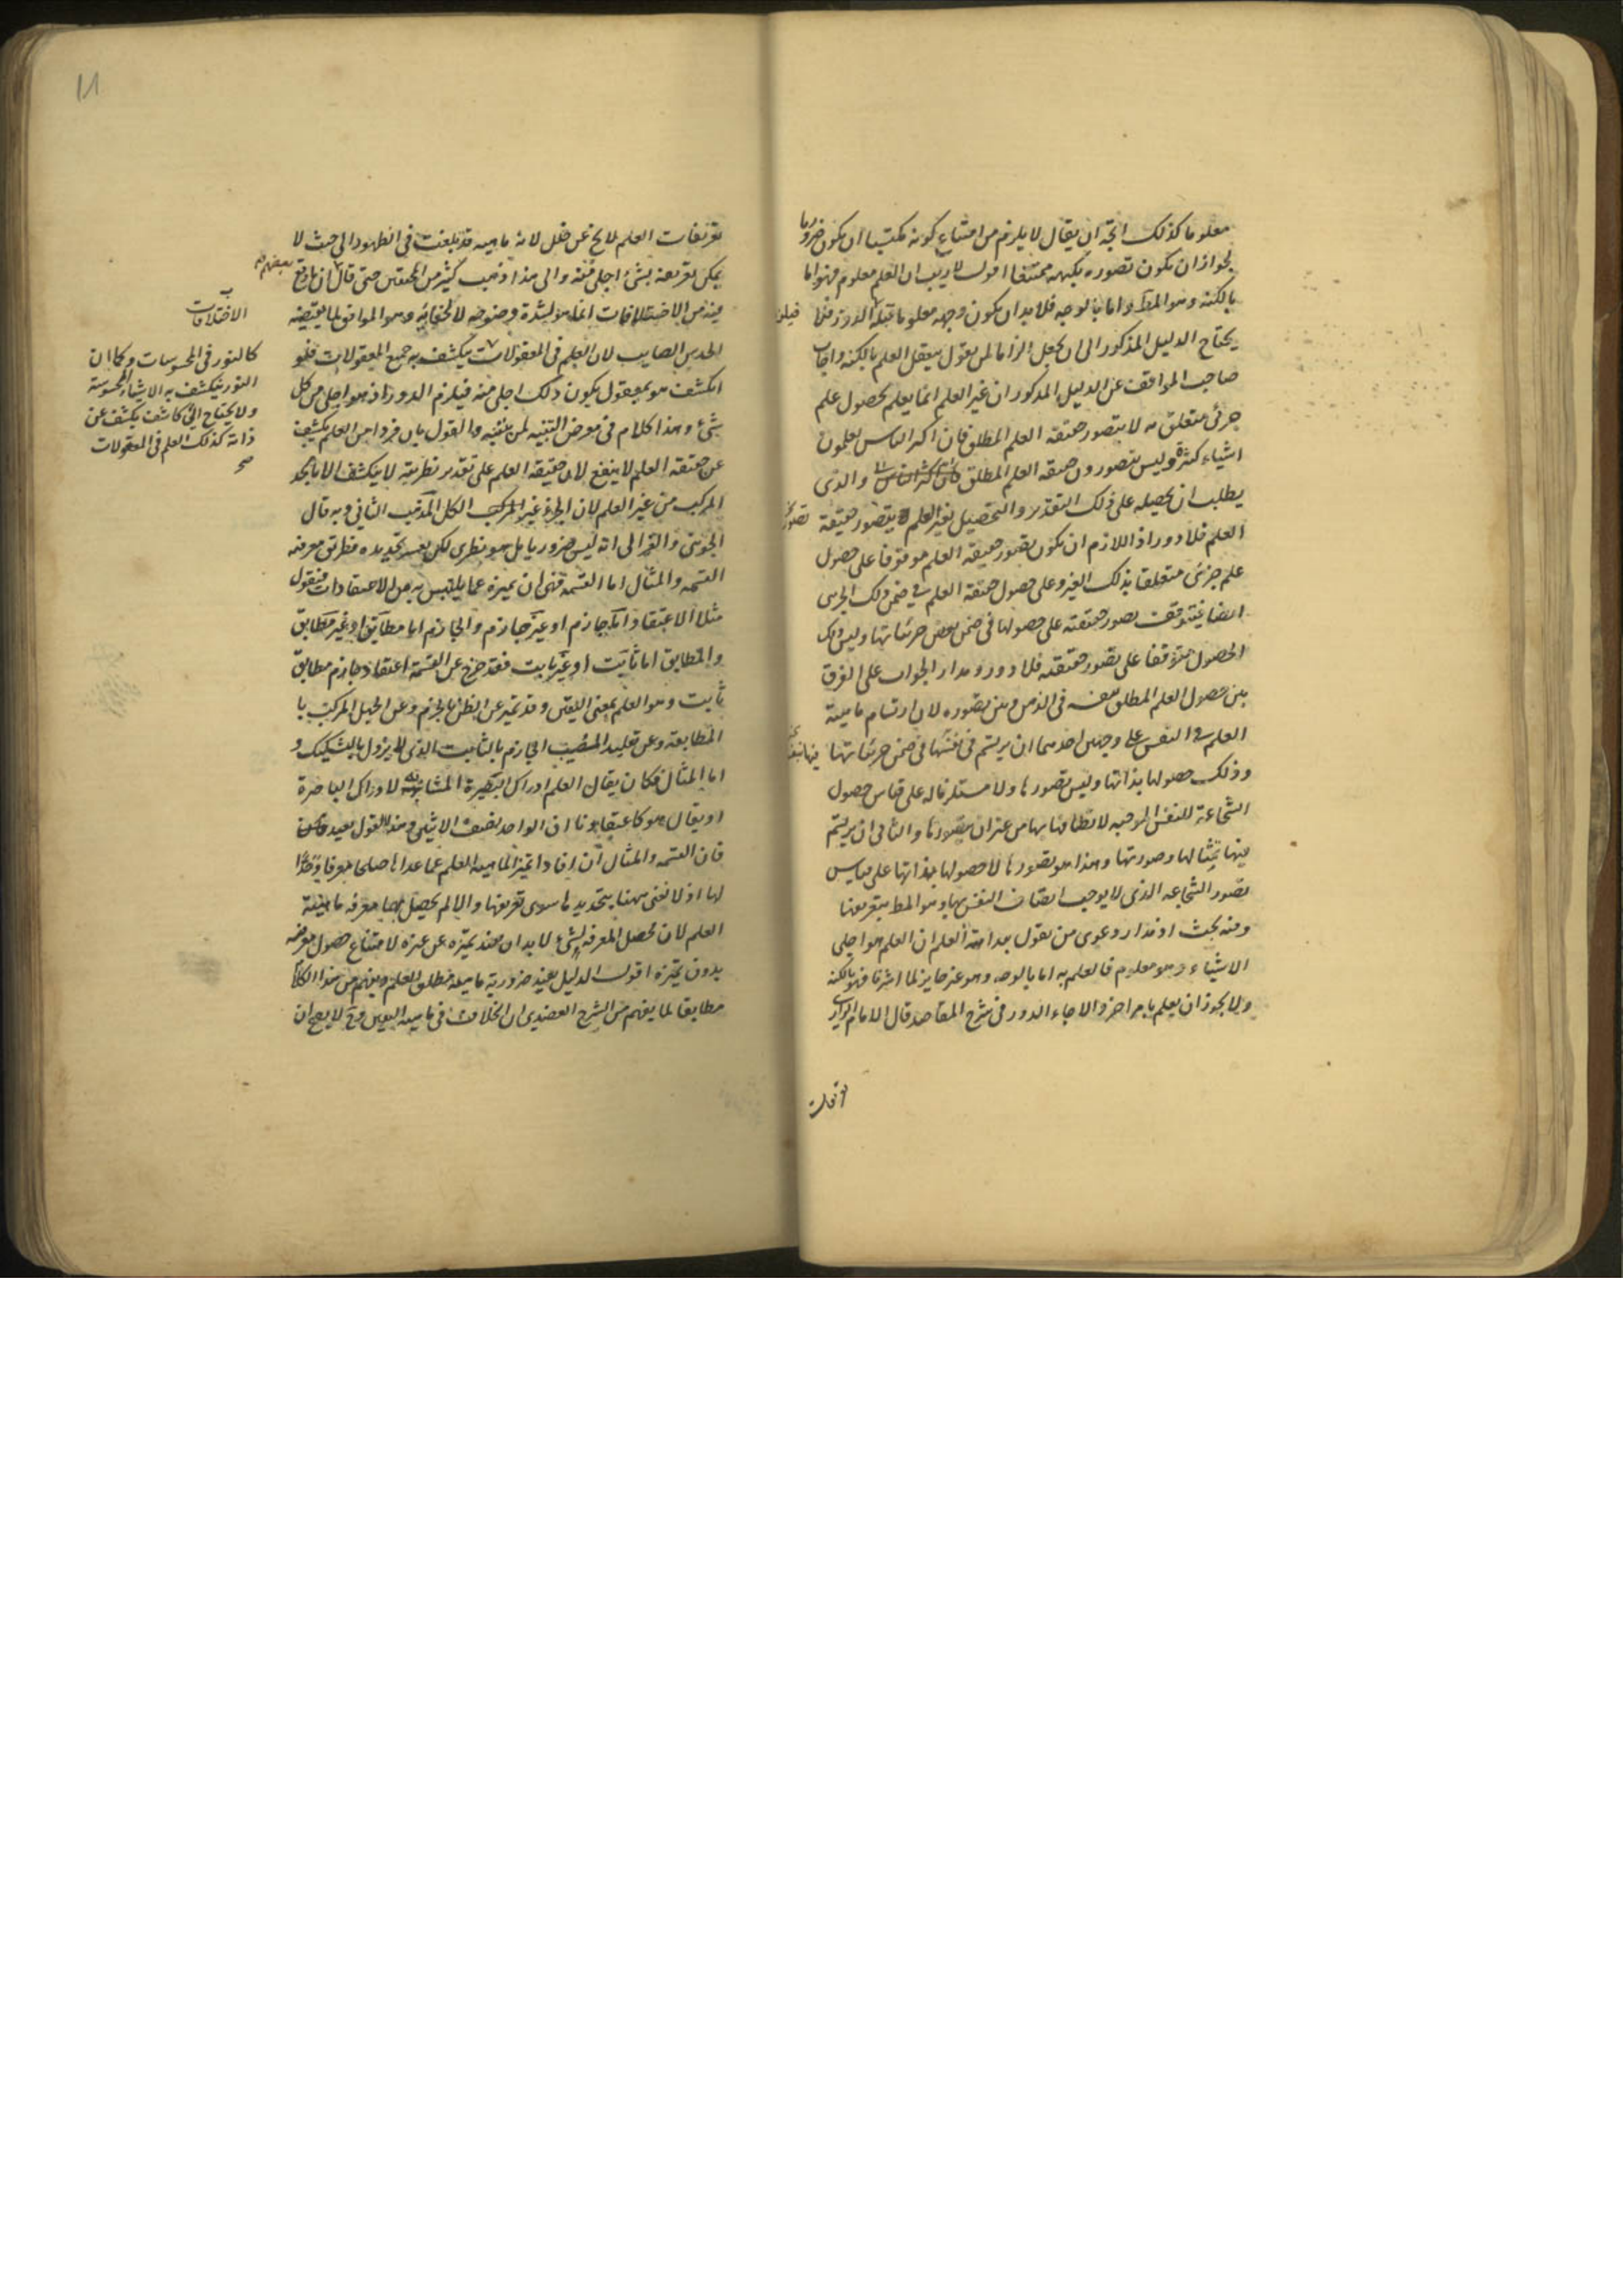 معلوما كذلك اتجه ان يقال لا يلزم من امتناع كونه مكتسبا ان يكون ضروريا
لجواز ان يكون تصوره بكنهه ممتنعا اقول لا ريب ان العلم معلوم فهو اما
بالكنه وهو المط واما بالوجه فلا بد ان يكون وجهه معلوما قبله الدور فلا
يحتاج الدليل المذكور الى ان يجعل الزاما لمن يقول بتعقل العلم بالكنه واجاب
صاحب المواقف عن الدليل المذكور ان غير العلم انما يعلم بحصول علم
جزئى متعلق به لا بتصور حقيقة العلم المطلق فان اكثر الناس يعلمون
اشياء كثيرة وليس يتصورون حقيقة العلم المطلق والذى
يطلب ان يحصله على ذلك التقدير والتحصيل بغير العلم يتصور حقيقة
العلم فلا دور اذ اللازم ان يكون تصور حقيقة العلم موقوفا على حصول
علم جزئى متعلقا بذلك الغير وعلى حصول حقيقة العلم فى ضمن ذلك الجزئى
ايضا فيتوقف تصور حقيقته على حصولها فى ضمن بعض جزئياتها وليس ذلك
الحصول متوقفا على تصور حقيقته فلا دور ومدار الجواب على الفرق
بين حصول العلم المطلق نفسه فى الذهن وبين تصوره لان ارتسام ماهية
العلم فى النفس على وجهين احدهما ان يرتسم فى نفسها فى ضمن جزئياتها
وذلك حصولها بذاتها وليس تصورها ولا مستلزما له على قياس حصول
الشجاعة للنفس الموجبه لاتصافها بها من غير ان يتصورها والثانى ان يرتسم
فيها بمثالها وصورتها وهذا هو تصورها لا حصولها بذاتها على قياس
تصور الشجاعه الذى لا يوجب اتصاف النفس بها وهو المط بتعريفها
وفيه بحث اذ مدار دعوى من يقول ببداهة العلم ان العلم هو اجلى
الاشياء وهو معلوم فالعلم به اما بالوجه وهو غير جايز لما اشرنا فهو بالكنه
ولا يجوز ان يعلم بامر اخر والا جاء الدور فى شرح المقاصد قال الامام الرازى
تعريفات العلم لا يخ عن خلل لانه ماهيه قد بلغت فى الظهور الى حيث لا
يمكن تعريفه بشئ اجلى منه والى هذا ذهب كثير من المحققين حتى قال بعضهم ان ما وقع
فيه من الاختلافات انما هو لشدة وضوحه لا لخفائه وهو الموافق لما يقتضيه
الحدس الصايب لان العلم فى المعقولات يكشف به جميع المعقولات فلو
انكشف هو بمعقول يكون ذلك اجلى منه فيلزم الدور اذ هو اجلى من كل
شئ وهذا كلام فى معرض التنبيه لمن يتنبه والقول بان فردا من العلم يكشف
عن حقيقة العلم لا ينفع لان حقيقة العلم على تقدير نظريته لا ينكشف الا بالحد
المركب من غير العلم لان الجزء غير المركب الكل المذهب الثانى وبه قال
الجوينى والغزالى انه ليس ضروريا بل هو نظرى لكن يعسر تحديده فطريق معرفته
القسمه والمثال اما القسمة فهى ان يميزه عما يلتبس به من الاعتقادات فنقول
مثلا الاعتقاد اما جازم او غير جازم والجازم اما مطابق او غير مطابق
والمطابق اما ثابت او غير ثابت فقد خرج عن القسمة اعتقاد جازم مطابق
ثابت وهو العلم بمعنى اليقين وقد تميز عن الظن بالجزم وعن الجهل المركب با
المطابقة وعن تقليد المصيب الجازم بالثابت الذى لا يزول بالتشكيك و
اما المثال فكان يقال العلم ادراك البصيرة المشابه لادراك الباصرة
او يقال هو كاعتقادنا ان الواحد نصف الاثنين وهذا القول بعيد
فان القسمه والمثال ان افادا تميز الماهيه العلم عما عداها صلحا معرفا وحدا
لها اذ لا نعنى ههنا بتحديدها سوى تعريفها والا لم يحصل بهما معرفه ماهية
العلم لان تحصل المعرفه لشئ لا بد ان يفيد تميزه عن غيره لامتناع حصول معرفته
بدون تميزه اقول الدليل يفيد ضرورية ماهية مطلق العلم ويفهم من هذا الكلام
مطابقا لما يفهم من الشرح العضدى ان الخلاف فى ماهيه اليقين وح لا يصح ان
الاختلافات
كالنور فى المحسوسات وكما ان
النور ينكشف به الاشياء المحسوسة
ولا يحتاج الى كاشف يكشف عن
ذاته كذلك العلم فى المعقولات
صح